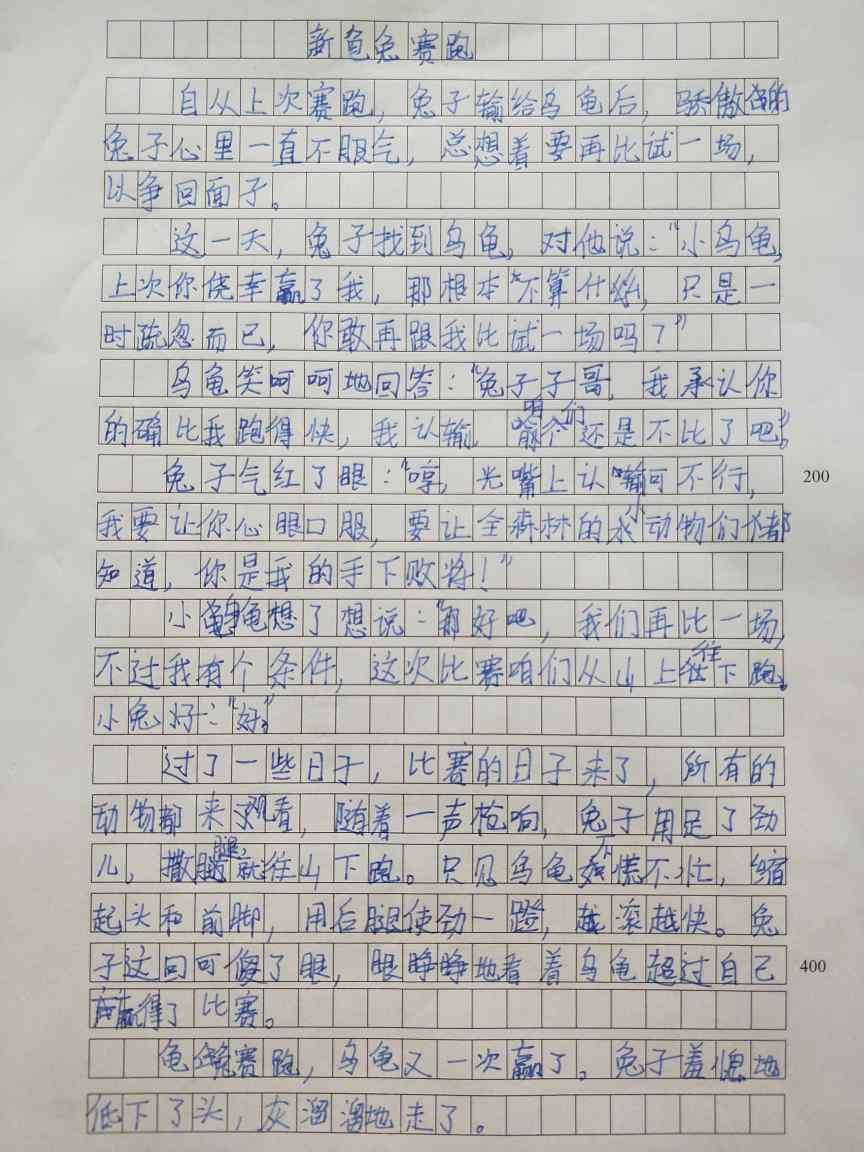 新龟兔赛跑
自从上次赛跑，兔子输给乌龟后，骄傲的
兔子心里一直不服气，总想着要再比试一场，
以争回面子。
这一天，兔子找到乌龟，对他说：“小乌龟，
上次你侥幸赢了我，那根本不算什么，只是一
时疏忽而已，你敢再跟我比试一场吗？”
乌龟笑呵呵地回答：“兔子子哥，我承认你
的确比我跑得快，我认输，咱们还是不比了吧！”
兔子气红了眼：“哼，光嘴上认输可不行，
我要让你心眼口服，要让全森林的小动物们都
知道，你是我的手下败将！”
小乌龟想了想说：“那好吧，我们再比一场，
不过我有个条件，这次比赛咱们从山上往下跑。
小兔好：“好。”
过了一些日子，比赛的日子来了，所有的
动物都来观看，随着一声枪响，兔子用足了劲
儿，撒腿，就往山下跑。只见乌龟不慌不忙，缩
起头和前脚，用后腿使劲一蹬，越滚越快。兔
子这回可傻了眼，眼睁睁地看着乌龟超过自己
赢得了比赛。
龟兔赛跑，乌龟又一次赢了。兔子羞愧地
低下了头，灰溜溜地走了。
200
400